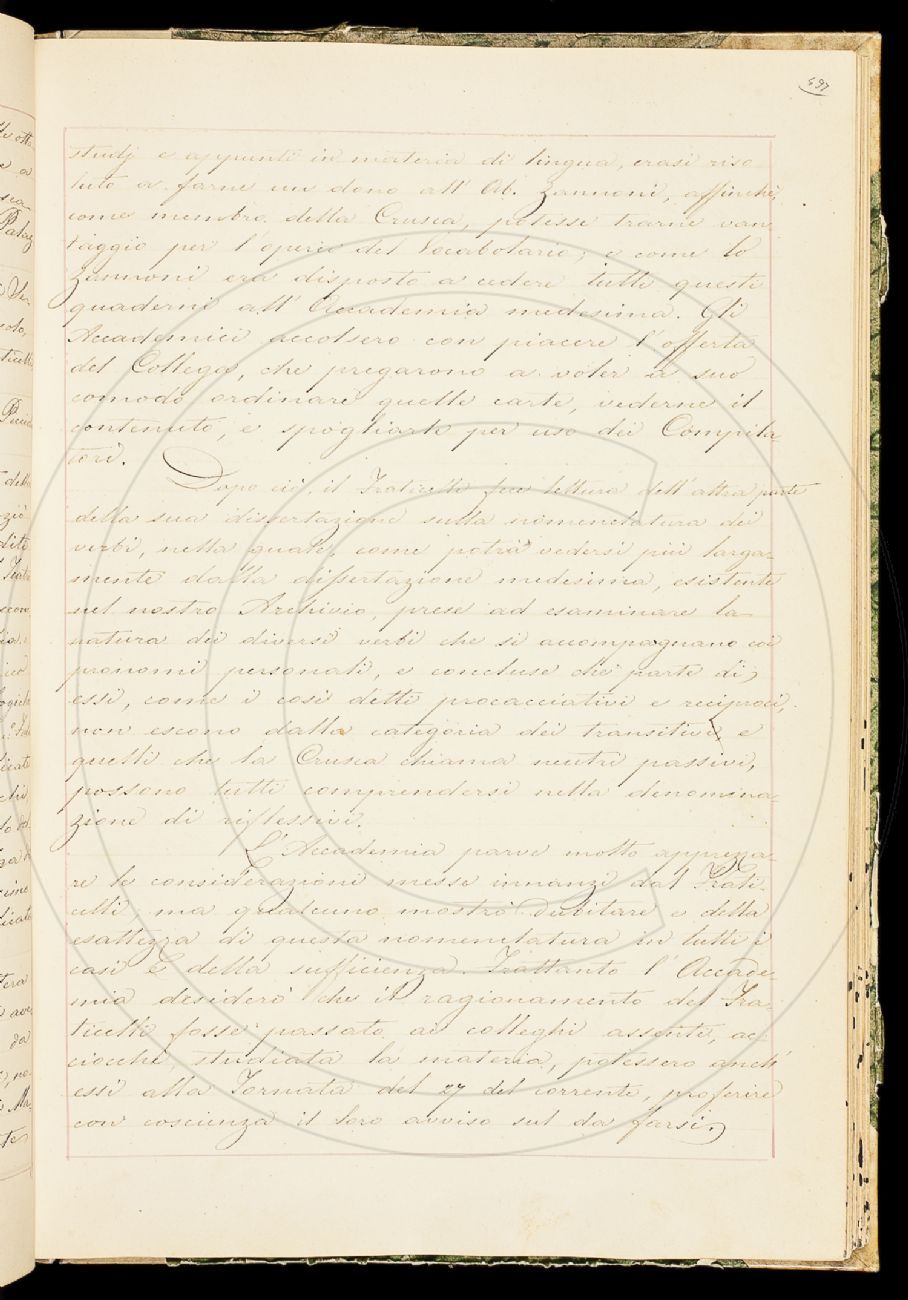 497
studj e appunti in materia di lingua, erasi riso
luto a farne un dono all' Ab. Zannoni, affinchè,
come membro della Crusca, potesse trarne van
taggio per l'opera del Vocabolario; e come lo
Zannoni era disposto a cedere tutti questi
quaderni all' Accademia medesima. Gli
Accademici accolsero con piacere l'offerta
del Collega, che pregarono a voler a suo
comodo ordinare quelle carte, vederne il
contenuto, e spogliarle per uso dei Compila
tori.
Dopo ciò, il Fraticelli fece lettura dell'altra parte
della sua dissertazione sulla nomenclatura dei
verbi, nella quale, come potrà vedersi più larga-
mente dalla dissertazione medesima, esistente
nel nostro Archivio, prese ad esaminare la
natura dei diversi verbi che si accompagnano coi
pronomi personali, e concluse che parte di
essi, come i così detti procacciativi e reciproci,
non escono dalla categoria dei transitivi, e
quelli che la Crusca chiama neutri passivi,
possono tutti comprendersi nella denomina-
zione di riflessivi.
L'Accademia parve molto apprezza-
re le considerazioni messe innanzi dal Frati-
celli, ma qualcuno mostrò dubitare e della
esattezza di questa nomenclatura in tutti i
casi e della sufficienza. Frattanto l'Accade-
mia desiderò che il ragionamento del Fra-
ticelli fosse passato ai colleghi assenti, ac-
ciocchè, studiata la materia, potessero anch'
essi alla Tornata del 27 del corrente, proferire
con coscienza il loro avviso sul da farsi.